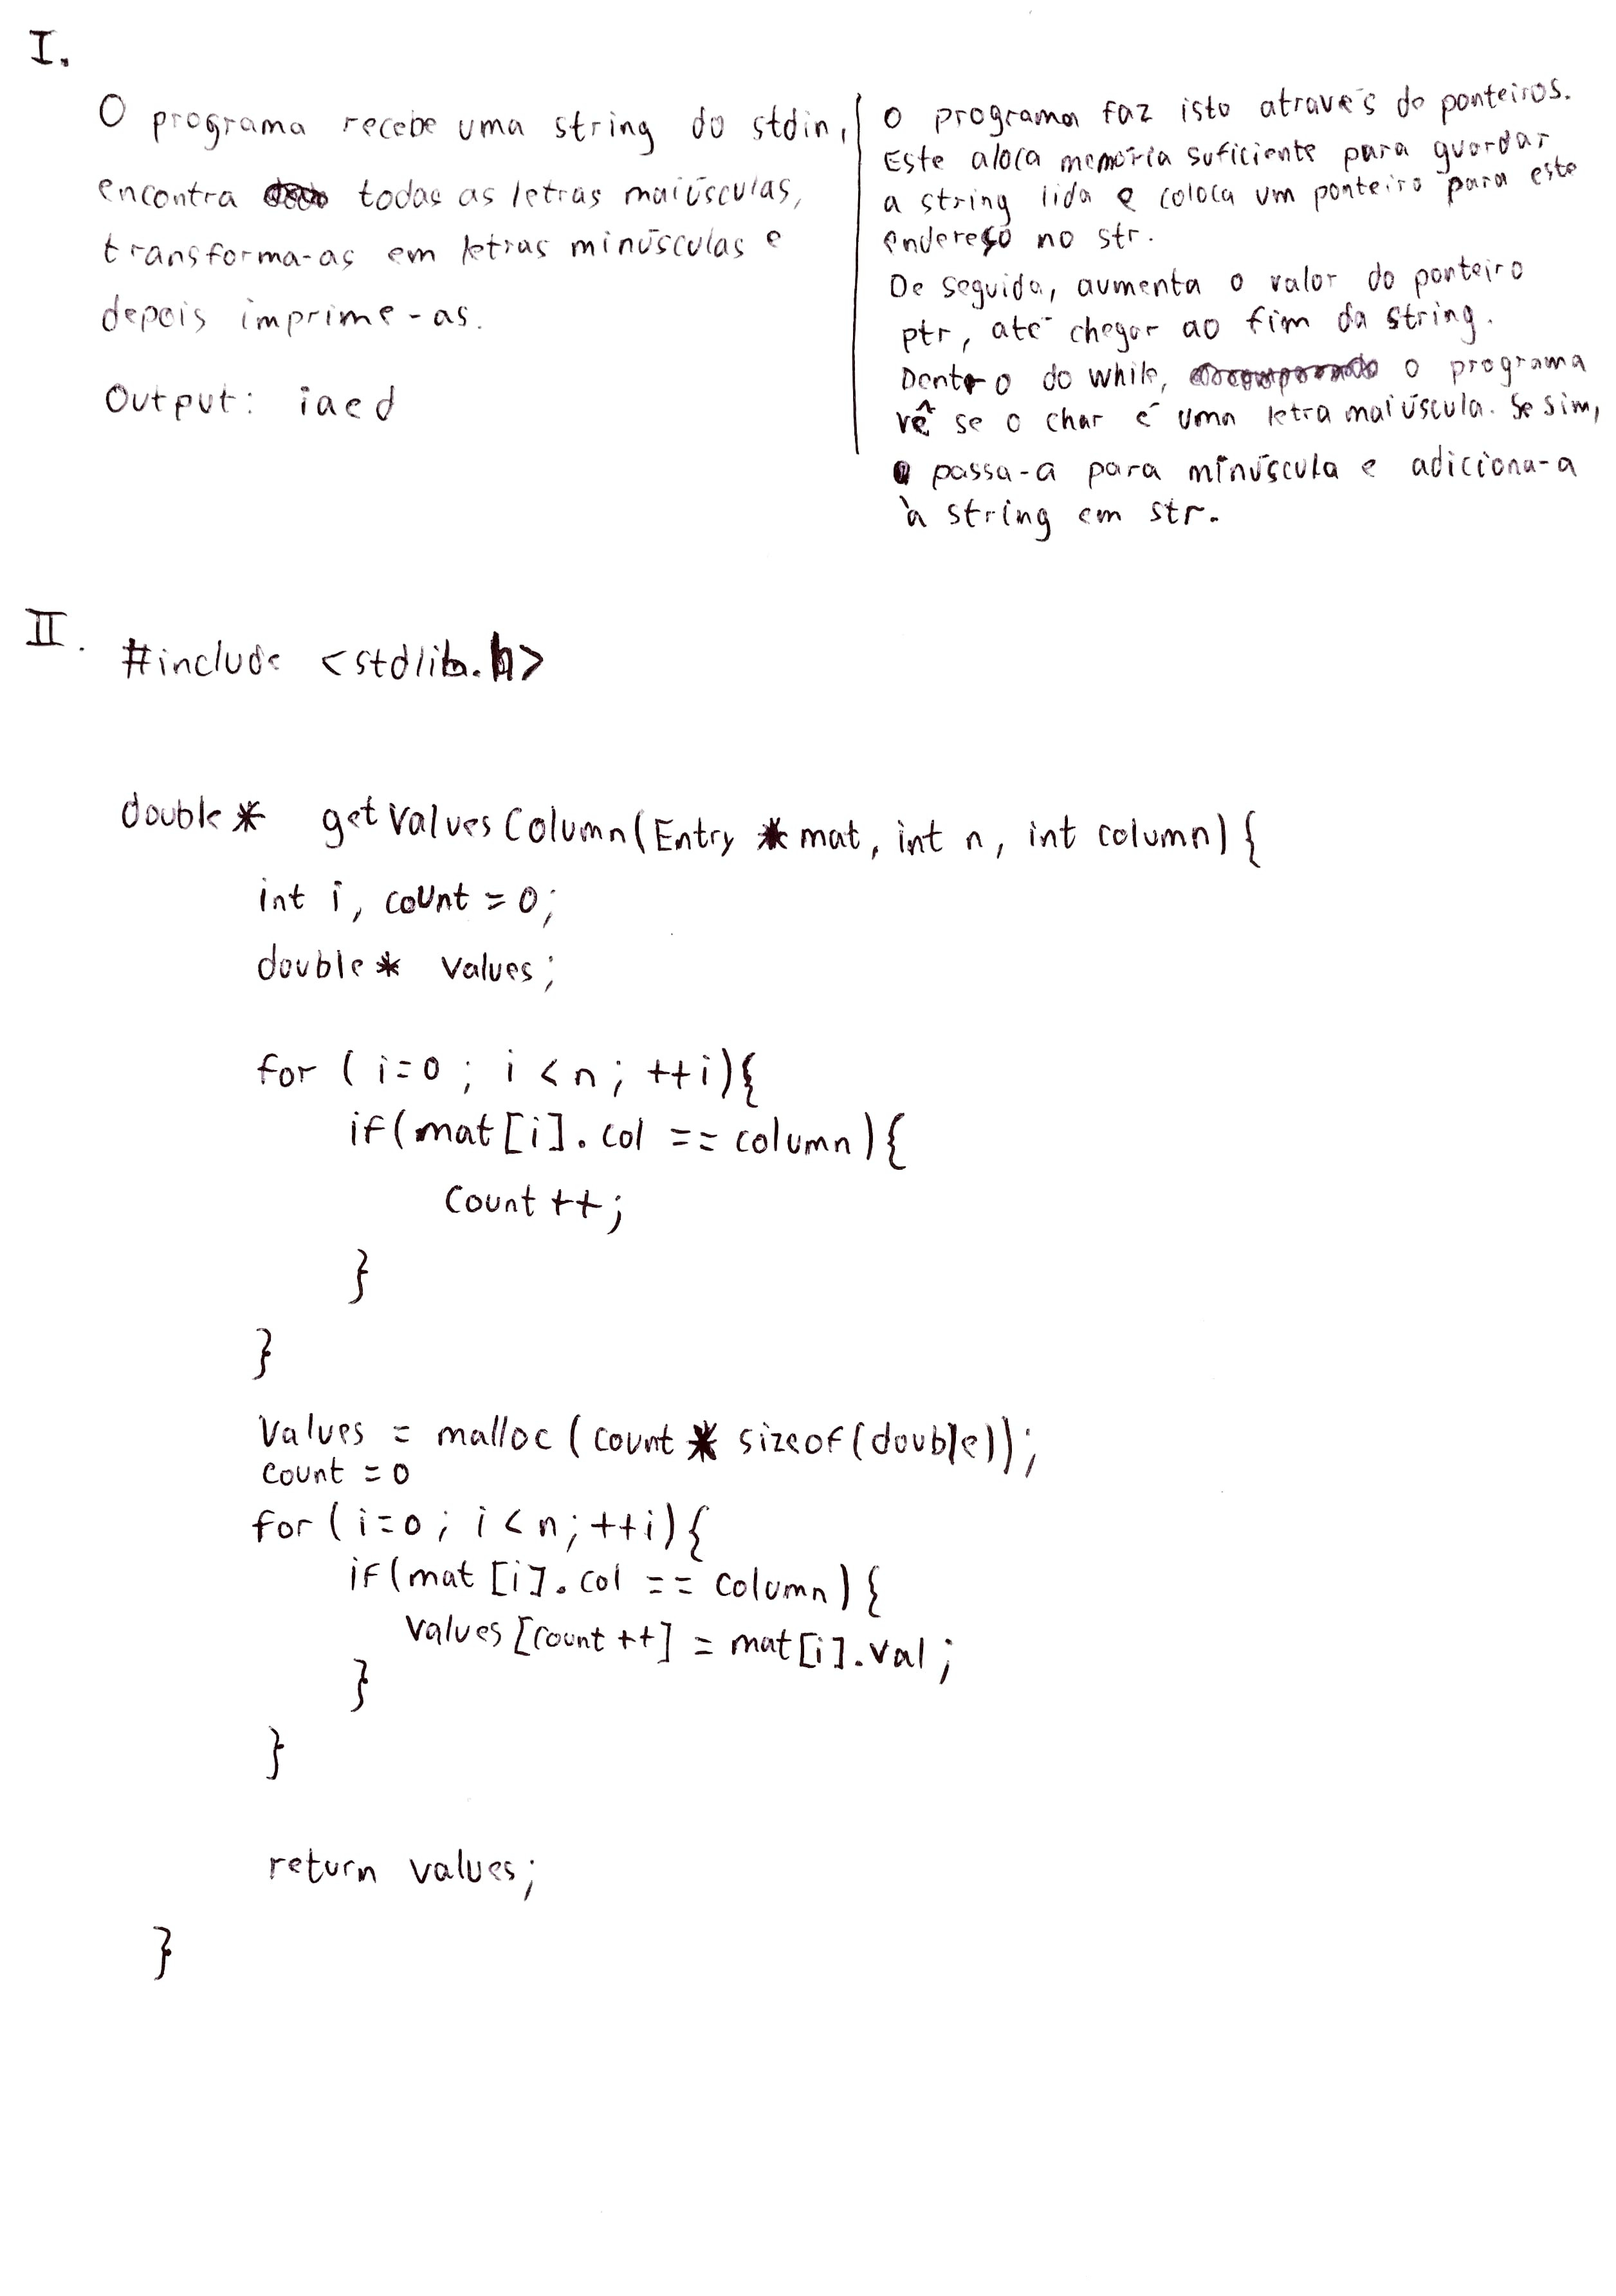 I.
O programa recebe uma string do stdin,
encontra todas as letras maiúsculas,
transforma-as em letras minúsculas e
depois imprime-as.
Output: iaed
O programa faz isto através de ponteiros.
Este aloca memória suficiente para guardar
a string lida e coloca um ponteiro para este
endereço no str.
De seguida, aumenta o valor do ponteiro
ptr, até chegar ao fim da string.
Dentro do while, o programa
vê se o char é uma letra maiúscula. Se sim,
passa-a para minúscula e adiciona-a
à string em str.
II.
#include <stdlib.h>
double* getValuesColumn(Entry *mat, int n, int column) {
int i, count = 0;
double* values;
for ( i=0 ; i < n ; ++i){
if(mat[i].col == column){
count ++;
}
}
values = malloc (count * sizeof(double));
count = 0
for ( i=0 ; i < n ; ++i){
if(mat [i].col == column) {
values [count ++] = mat[i].val ;
}
}
return values;
}